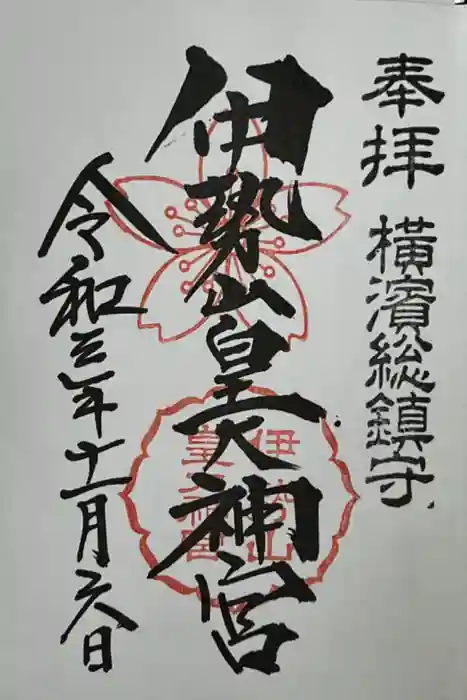 奉拝 横濱総鎮守
伊勢山皇大神宮
伊勢山
皇大神宮
令和三年十一月六日